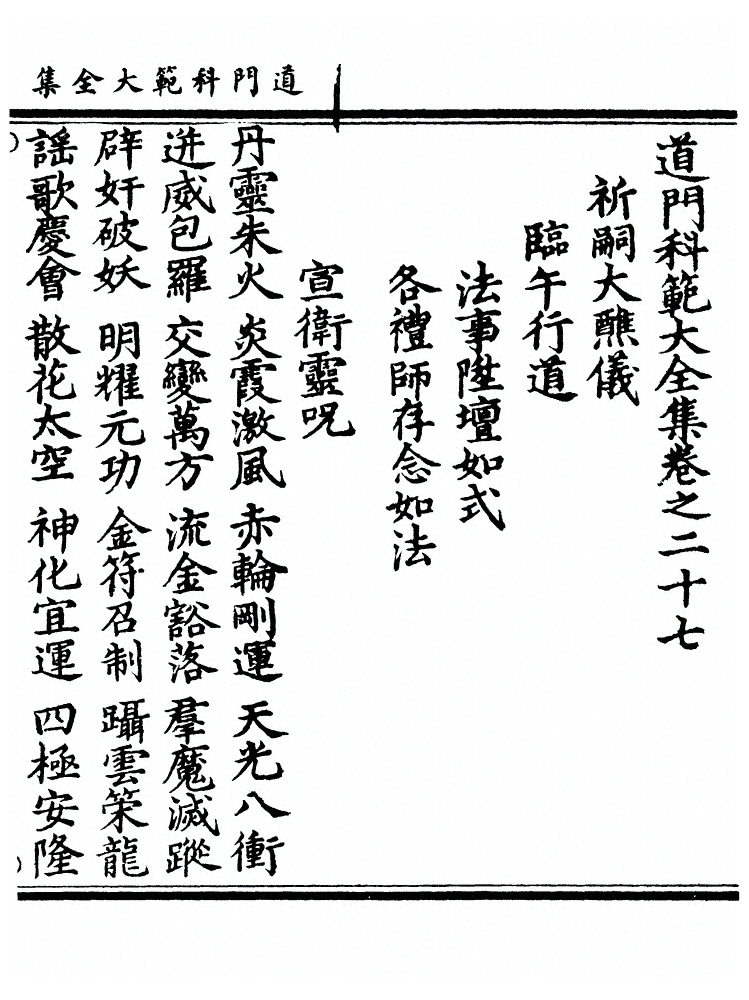 道門科範大全集
道門科範大全集卷之二十七
祈嗣大醮儀
臨午行道
法事陞壇如式
各禮師存念如法
宣衛靈呪
丹靈朱火 炎霞激風 赤輪剛運 天光八衝
迸威包羅 交變萬方 流金豁落 羣魔滅蹤
辟奸破妖 明耀元功 金符召制 躡雲策龍
謠歌慶會 散花太空 神化宜運 四極安隆